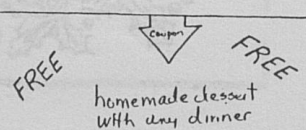 Coupon
FREE
FREE
homemade dessert
with any dinner